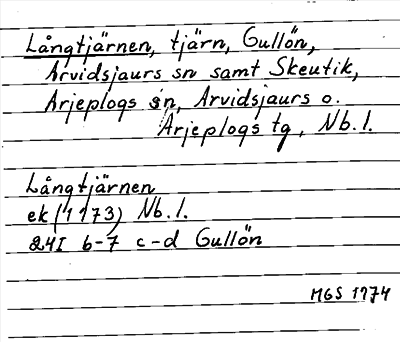 Långtjärnen, tjärn, Gullön,
Arvidsjaurs sn samt Skeutik,
Arjeplogs sn, Arvidsjaurs o.
Arjeplogs tg, Nb.l.
Långtjärnen
ek (1173) Nb.l.
24I b-7 c-d Gullön
MGS 1974